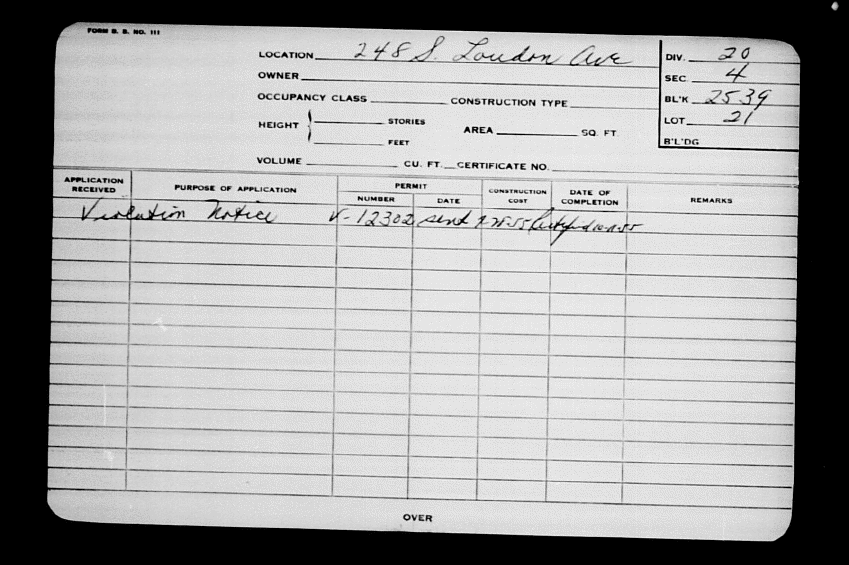 FORM B. B. NO. 111
LOCATION 248 S. Loudon Ave
DIV. 20
OWNER
SEC. 4
OCCUPANCY CLASS CONSTRUCTION TYPE
BL'K 2539
HEIGHT STORIES
FEET
AREA SQ. FT.
LOT 21
B'L'DG
VOLUME CU. FT. CERTIFICATE NO.
APPLICATION RECEIVED PURPOSE OF APPLICATION PERMIT CONSTRUCTION COST DATE OF COMPLETION REMARKS
NUMBER DATE
Violation Notice V-12302 sent
OVER